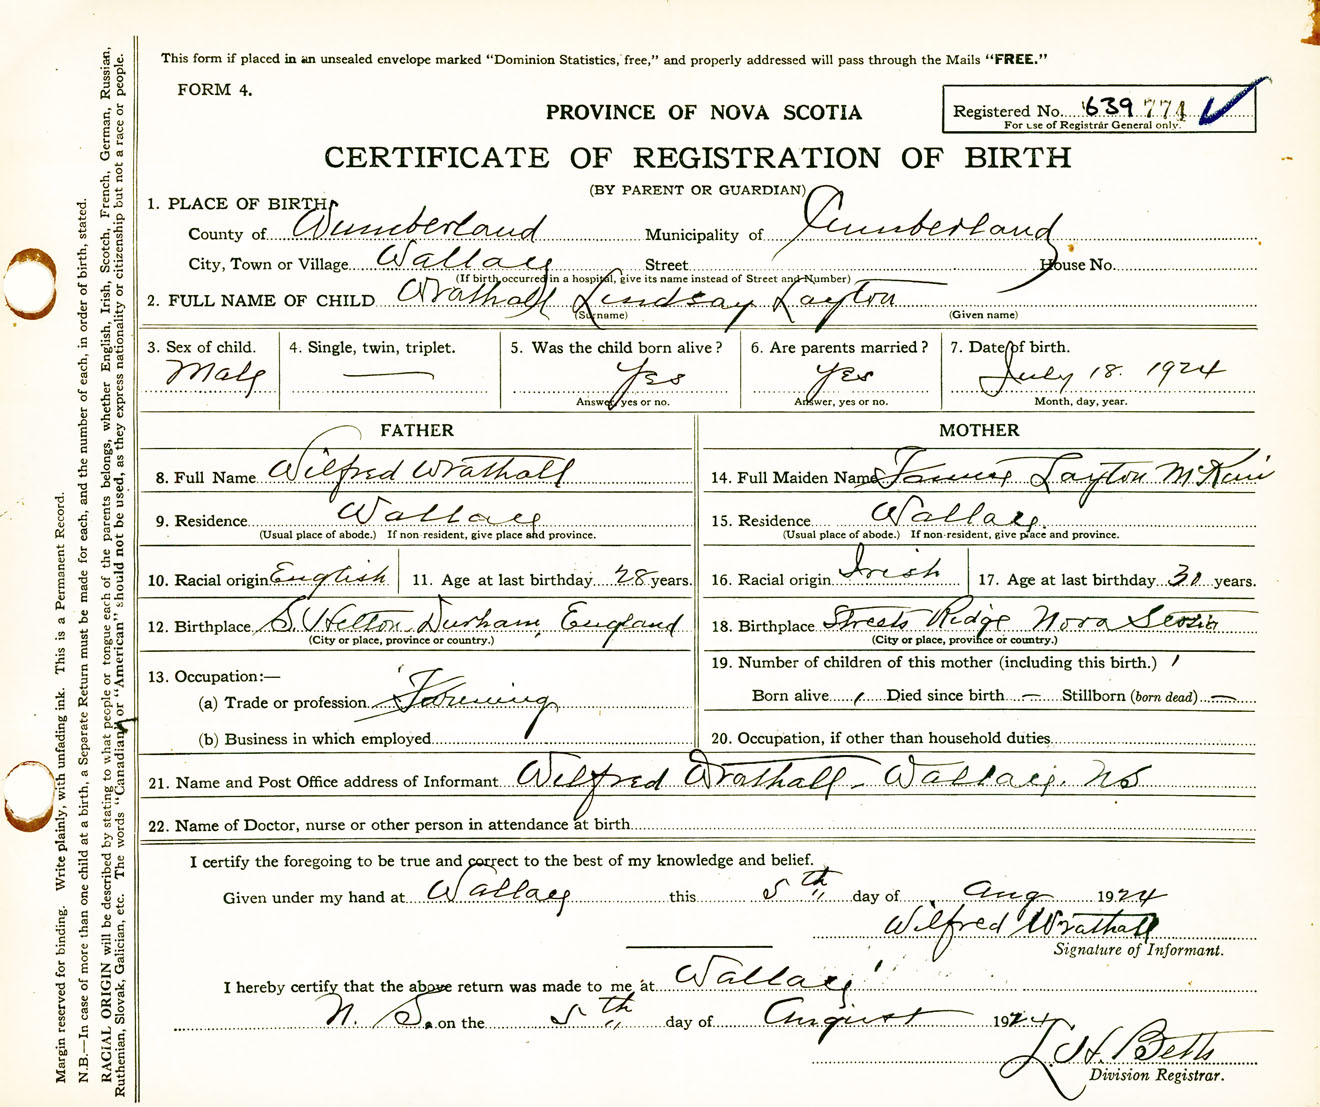 This form if placed in an unsealed envelope marked "Dominion Statistics, free," and properly addressed will pass through the Mails "FREE."
FORM 4.
Registered No. 639 774
For use of Registrar General only.
PROVINCE OF NOVA SCOTIA
CERTIFICATE OF REGISTRATION OF BIRTH
(BY PARENT OR GUARDIAN)
1. PLACE OF BIRTH
County of Cumberland Municipality of Cumberland
City, Town or Village Wallace Street House No.
(If birth occurred in a hospital, give its name instead of Street and Number)
2. FULL NAME OF CHILD Wrathall Lindsay Layton
(Surname) (Given name)
3. Sex of child. 4. Single, twin, triplet. 5. Was the child born alive? 6. Are parents married? 7. Date of birth.
Male — Yes Yes July 18. 1924
Answer, yes or no. Answer, yes or no. Month, day, year.
FATHER
8. Full Name Wilfred Wrathall
9. Residence Wallace
(Usual place of abode.) If non-resident, give place and province.
10. Racial origin English 11. Age at last birthday 28 years.
12. Birthplace S. Hetton Durham, England
(City or place, province or country.)
13. Occupation:—
(a) Trade or profession Farming
(b) Business in which employed
MOTHER
14. Full Maiden Name Layton
15. Residence Wallace.
(Usual place of abode.) If non-resident, give place and province.
16. Racial origin Irish 17. Age at last birthday 30 years.
18. Birthplace Streets Ridge Nova Scotia
(City or place, province or country.)
19. Number of children of this mother (including this birth.) 1
Born alive 1 Died since birth — Stillborn (born dead) —
20. Occupation, if other than household duties
21. Name and Post Office address of Informant Wilfred Wrathall - Wallace. N.S
22. Name of Doctor, nurse or other person in attendance at birth
I certify the foregoing to be true and correct to the best of my knowledge and belief.
Given under my hand at Wallace this 5th day of Aug 1924
Wilfred Wrathall
Signature of Informant.
I hereby certify that the above return was made to me at Wallace
N. S. on the 5th day of August 1924
Betts
Division Registrar.
Margin reserved for binding. Write plainly, with unfading ink. This is a Permanent Record.
N.B.—In case of more than one child at a birth, a Separate Return must be made for each, and the number of each, in order of birth, stated.
RACIAL ORIGIN will be described by stating to what people or tongue each of the parents belongs, whether English, Irish, Scotch, French, German, Russian,
Ruthenian, Slovak, Galician, etc. The words "Canadian" or "American" should not be used, as they express nationality or citizenship but not a race or people.